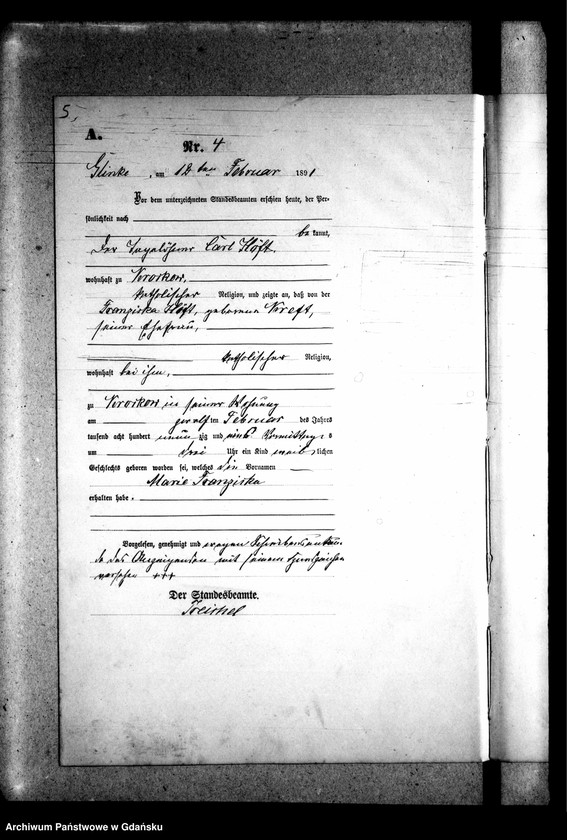 5.
A.
Nr. 4
Glinke, am 12 ten Februar 1891
Vor dem unterzeichneten Standesbeamten erschien heute, der Per-
sönlichkeit nach
be kannt,
der Tagelöhner Carl Höft
wohnhaft zu
katholischer Religion, und zeigte an, daß von der
Franziska Höft, geborene Kreft,
seiner Ehefrau,
katholischer Religion,
wohnhaft bei ihm,
zu in seiner Wohnung
am zwölften Februar des Jahres
tausend acht hundert neunzig und eins Vormittags
um drei Uhr ein Kind weiblichen
Geschlechts geboren worden sei, welches die Vornamen
Marie Franziska
erhalten habe.
Vorgelesen, genehmigt und wegen Schreibensunkun-
de des Anzeigenden mit seinem Handzeichen
versehen +++
Der Standesbeamte.
Archiwum Państwowe w Gdańsku